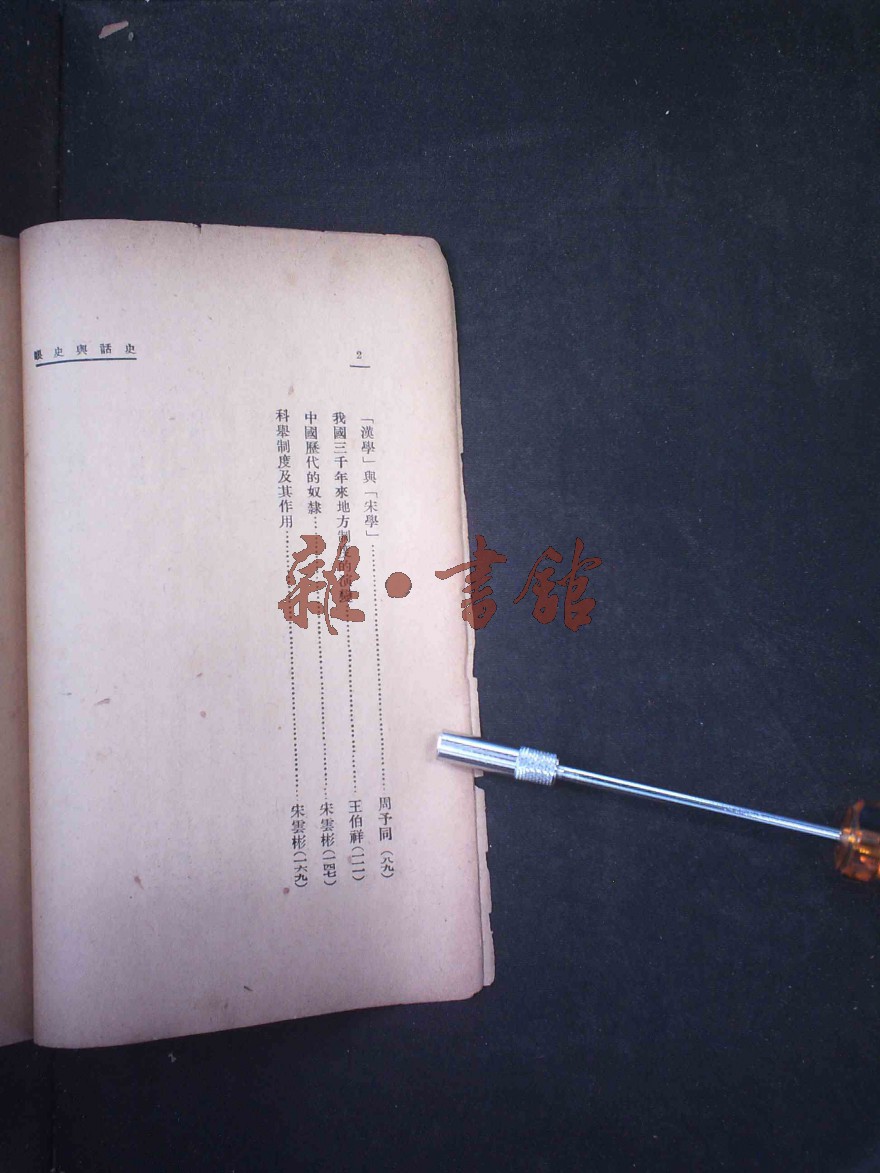 史話與史眼
2
「漢學」與「宋學」……周予同(八九)
我國三千年來地方制度的演變……王伯祥(一一一)
中國歷代的奴隸……宋雲彬(一四七)
科舉制度及其作用……宋雲彬(一六九)
雜·書館